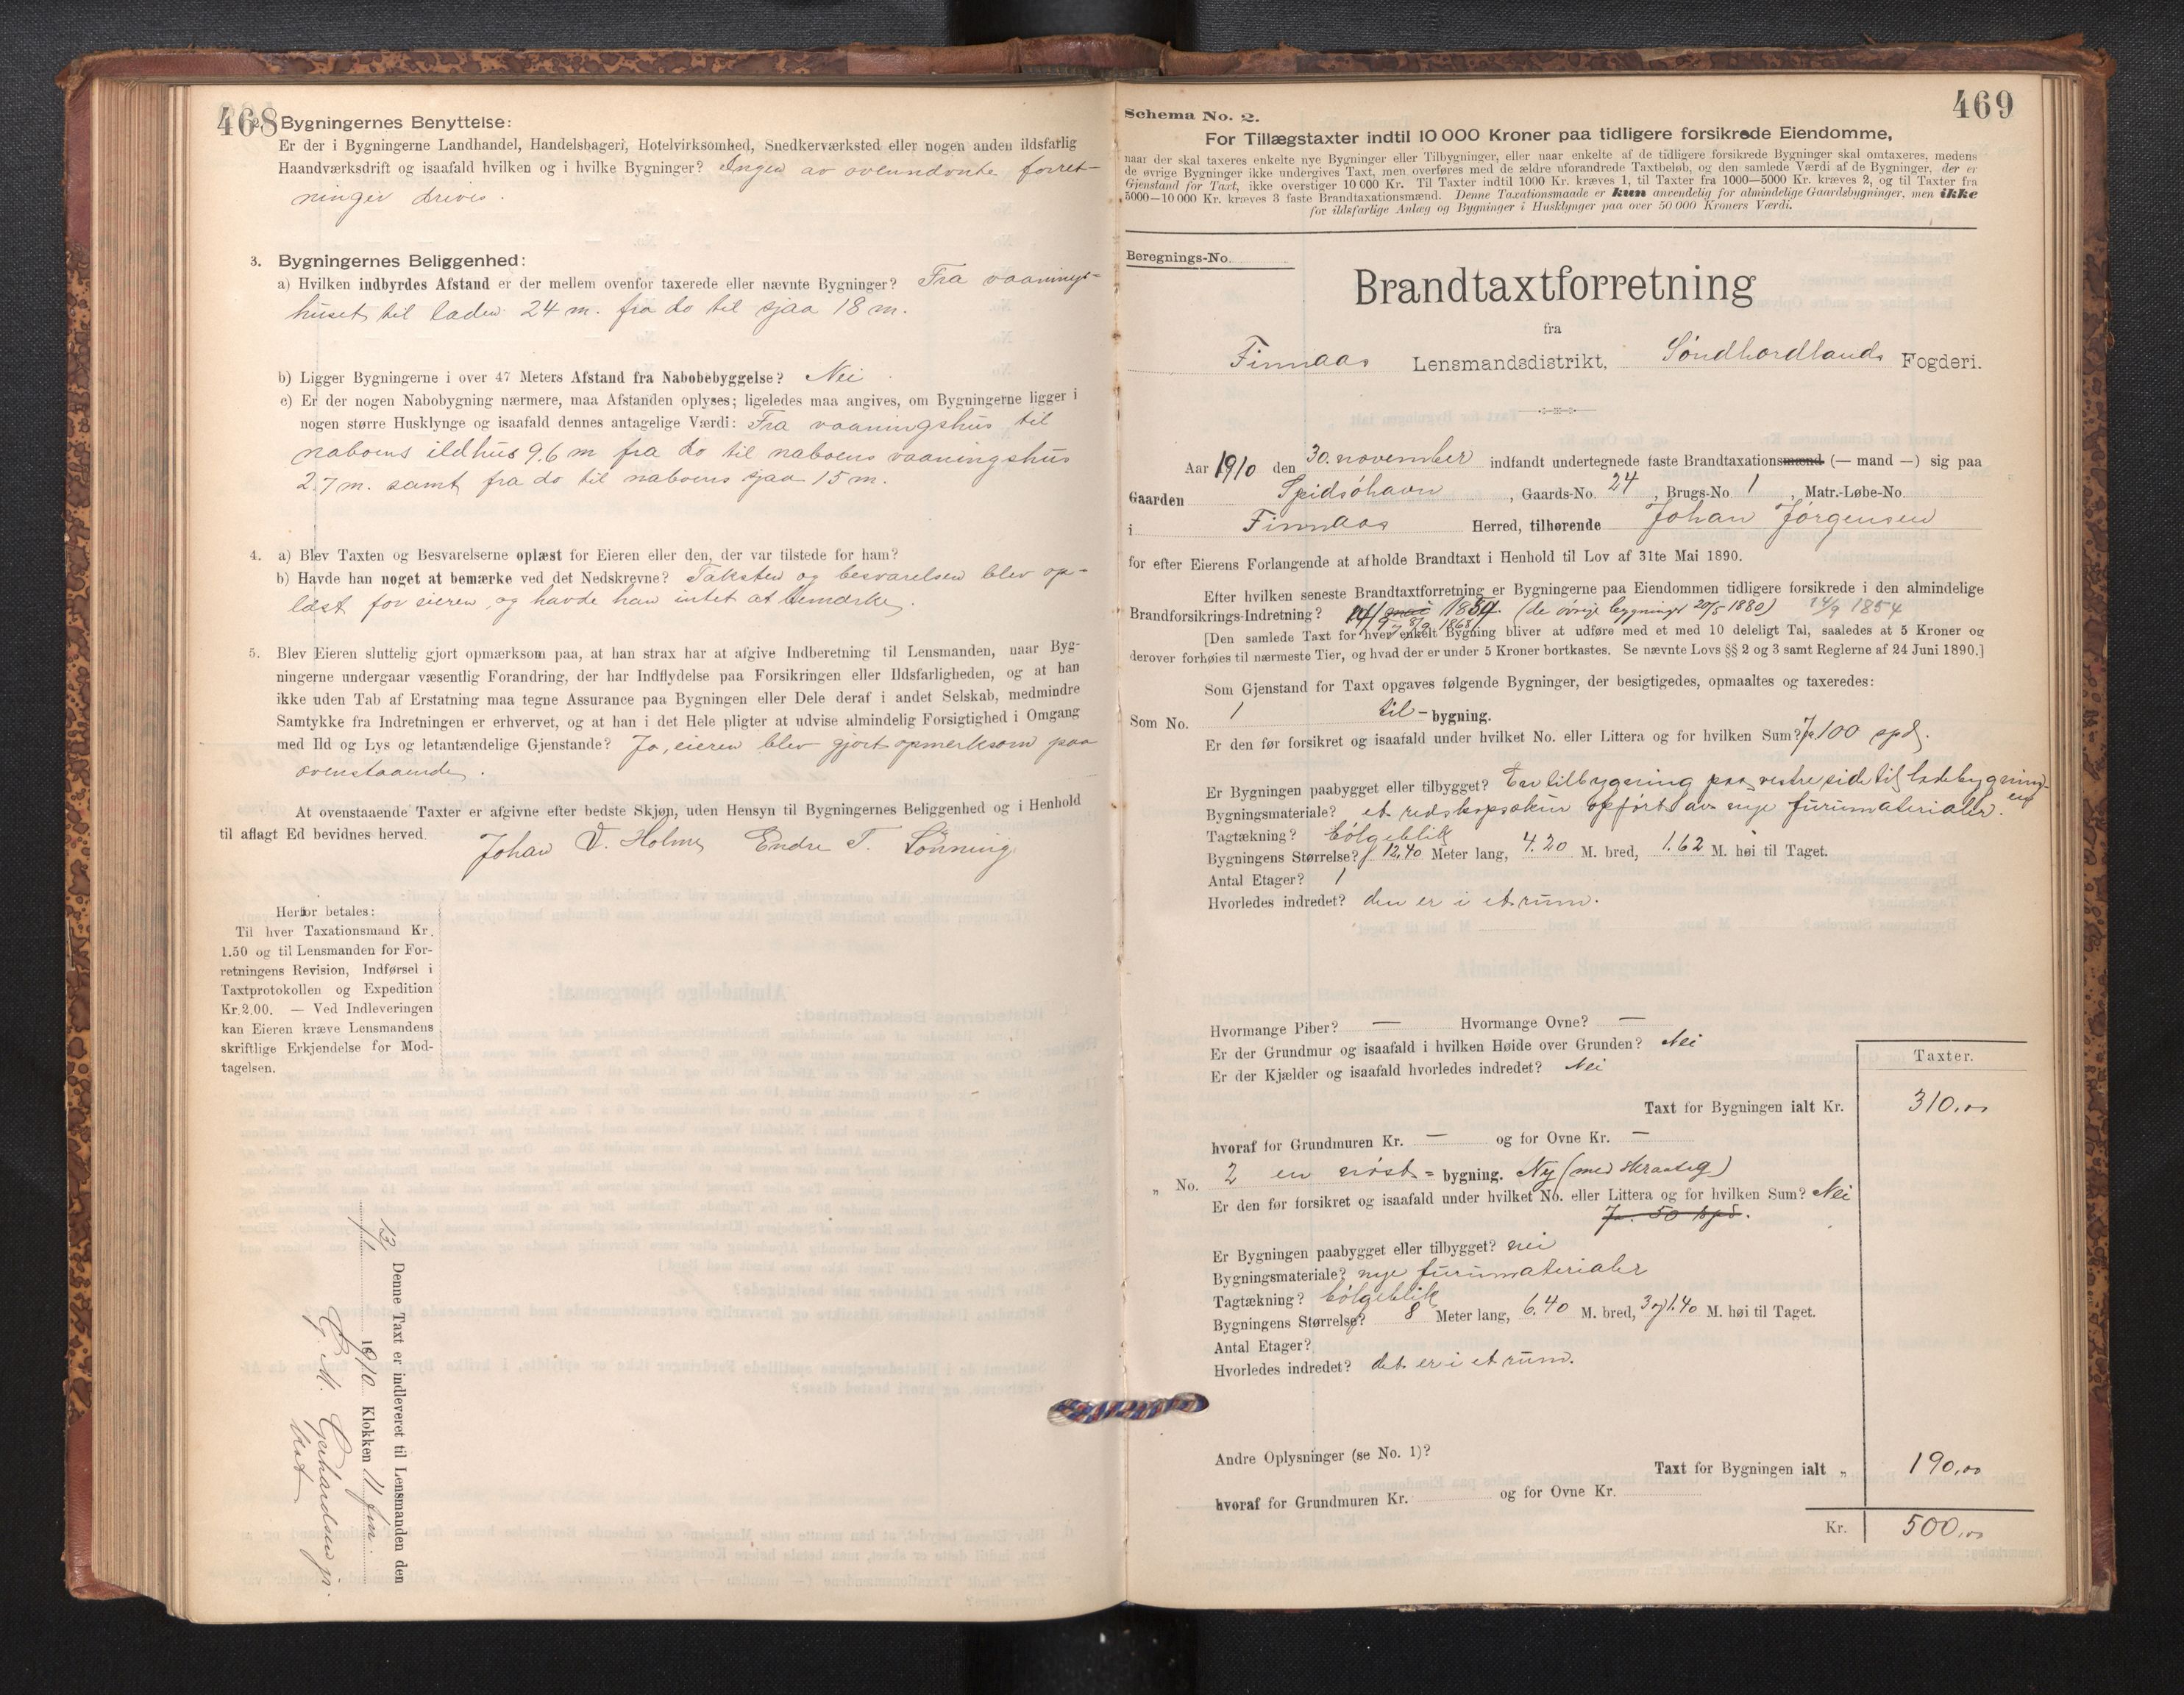 468
2. Bygningernes Benyttelse:
Er der i Bygningerne Landhandel, Handelsbageri, Hotelvirksomhed, Snedkerværksted eller nogen anden ildsfarlig
Haandværksdrift og isaafald hvilken og i hvilke Bygninger? Ingen av ovennævnte forret-
ninger drives.
3. Bygningernes Beliggenhed:
a) Hvilken indbyrdes Afstand er der mellem ovenfor taxerede eller nævnte Bygninger? Fra vaanings-
huset til laden 24 m. fra do til sjaa 18 m.
b) Ligger Bygningerne i over 47 Meters Afstand fra Nabobebyggelse? Nei
c) Er der nogen Nabobygning nærmere, maa Afstanden oplyses; ligeledes maa angives, om Bygningerne ligger i
nogen større Husklynge og isaafald dennes antagelige Værdi: Fra vaaningshus til
naboens ildhus 9.6 m fra do til naboens vaaningshus
2.7 m. samt fra do til naboens sjaa 15 m.
4. a) Blev Taxten og Besvarelserne oplæst for Eieren eller den, der var tilstede for ham?
b) Havde han noget at bemærke ved det Nedskrevne? Taksten og besvarelsen blev op-
læst for eieren, og havde han intet at bemærke.
5. Blev Eieren sluttelig gjort opmærksom paa, at han strax har at afgive Indberetning til Lensmanden, naar Byg-
ningerne undergaar væsentlig Forandring, der har Indflydelse paa Forsikringen eller Ildsfarligheden, og at han
ikke uden Tab af Erstatning maa tegne Assurance paa Bygningen eller Dele deraf i andet Selskab, medmindre
Samtykke fra Indretningen er erhvervet, og at han i det Hele pligter at udvise almindelig Forsigtighed i Omgang
med Ild og Lys og letantændelige Gjenstande? Ja, eieren blev gjort opmerksom paa
ovenstaaende.
At ovenstaaende Taxter er afgivne efter bedste Skjøn, uden Hensyn til Bygningernes Beliggenhed og i Henhold
til aflagt Ed bevidnes herved. Johan V. Holme Endre T. Lønning
Herfor betales:
Til hver Taxationsmand Kr.
1.50 og til Lensmanden for For-
retningens Revision, Indførsel i
Taxtprotokollen og Expedition
Kr. 2.00. — Ved Indleveringen
kan Eieren kræve Lensmandens
skriftlige Erkjendelse for Mod-
tagelsen.
Denne Taxt er indleveret til Lensmanden den
1910 Klokken 11 fm.
G. M. Gerhardsen jr.
469
Schema No. 2.
For Tillægstaxter indtil 10 000 Kroner paa tidligere forsikrede Eiendomme,
naar der skal taxeres enkelte nye Bygninger eller Tilbygninger, eller naar enkelte af de tidligere forsikrede Bygninger skal omtaxeres, medens
de øvrige Bygninger ikke undergives Taxt, men overføres med de ældre uforandrede Taxtbeløb, og den samlede Værdi af de Bygninger, der er
Gjenstand for Taxt, ikke overstiger 10 000 Kr. Til Taxter indtil 1000 Kr. kræves 1, til Taxter fra 1000—5000 Kr. kræves 2, og til Taxter fra
5000—10 000 Kr. kræves 3 faste Brandtaxationsmænd. Denne Taxationsmaade er kun anvendelig for almindelige Gaardsbygninger, men ikke
for ildsfarlige Anlæg og Bygninger i Husklynger paa over 50 000 Kroners Værdi.
Beregnings-No.
Brandtaxtforretning
fra
Finnaas Lensmandsdistrikt, Søndhordlands Fogderi.
Aar 1910 den 30. november indfandt undertegnede faste Brandtaxationsmænd (— mand —) sig paa
Gaarden Speidsøhavn, Gaards-No. 24, Brugs-No. 1, Matr.-Løbe-No.
i Finnaas Herred, tilhørende Johan Jørgensen
for efter Eierens Forlangende at afholde Brandtaxt i Henhold til Lov af 31te Mai 1890.
Efter hvilken seneste Brandtaxtforretning er Bygningerne paa Eiendommen tidligere forsikrede i den almindelige
Brandforsikrings-Indretning? 14/9 1854. (de øvrige bygninger 20/5 1880) 14/9 1854
8/9 1868
[Den samlede Taxt for hver enkelt Bygning bliver at udføre med et med 10 deleligt Tal, saaledes at 5 Kroner og
derover forhøies til nærmeste Tier, og hvad der er under 5 Kroner bortkastes. Se nævnte Lovs §§ 2 og 3 samt Reglerne af 24 Juni 1890.]
Som Gjenstand for Taxt opgaves følgende Bygninger, der besigtigedes, opmaaltes og taxeredes:
Som No. 1 til-bygning.
Er den før forsikret og isaafald under hvilket No. eller Littera og for hvilken Sum? Ja 100 spd.
Er Bygningen paabygget eller tilbygget? En tilbygning paa vestre side til ladebygning-
en
Bygningsmateriale? et redskapsskur opført av nye furumaterialer.
Tagtækning? bølgeblik
Bygningens Størrelse? 12,40 Meter lang, 4.20 M. bred, 1.62 M. høi til Taget.
Antal Etager? 1
Hvorledes indredet? den er i et rum.
Hvormange Piber? — Hvormange Ovne? —
Er der Grundmur og isaafald i hvilken Høide over Grunden? Nei
Er der Kjælder og isaafald hvorledes indredet? Nei
Taxter.
Taxt for Bygningen ialt Kr. 310,00
hvoraf for Grundmuren Kr. — og for Ovne Kr. —
„ No. 2 en nøst-bygning. Ny (med skraatag)
Er den før forsikret og isaafald under hvilket No. eller Littera og for hvilken Sum? Nei
Ja. 50 spd.
Er Bygningen paabygget eller tilbygget? nei
Bygningsmateriale? nye furumaterialer
Tagtækning? bølgeblik
Bygningens Størrelse? 8 Meter lang, 6.40 M. bred, 3 og 1.40 M. høi til Taget.
Antal Etager?
Hvorledes indredet? det er i et rum.
Andre Oplysninger (se No. 1)?
Taxt for Bygningen ialt „ 190,00
hvoraf for Grundmuren Kr. og for Ovne Kr.
Kr. 500,00